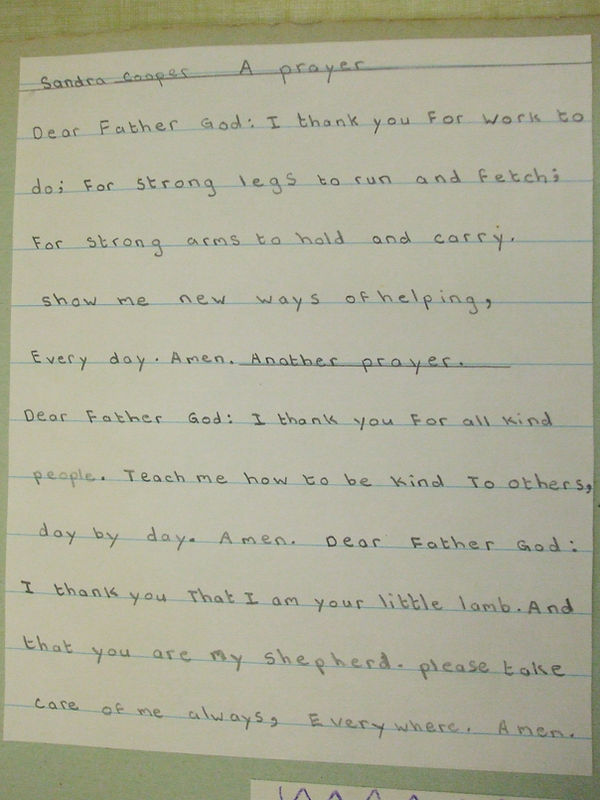 Sandra Cooper A prayer
Dear Father God: I thank you For work to
do; For strong legs to run and fetch;
For strong arms to hold and carry.
show me new ways of helping,
Every day. Amen. Another prayer.
Dear Father God: I thank you For all kind
people. Teach me how to be kind To others,
day by day. Amen. Dear Father God:
I thank you That I am your little lamb. And
that you are my shepherd. please take
care of me always, Every where. Amen.